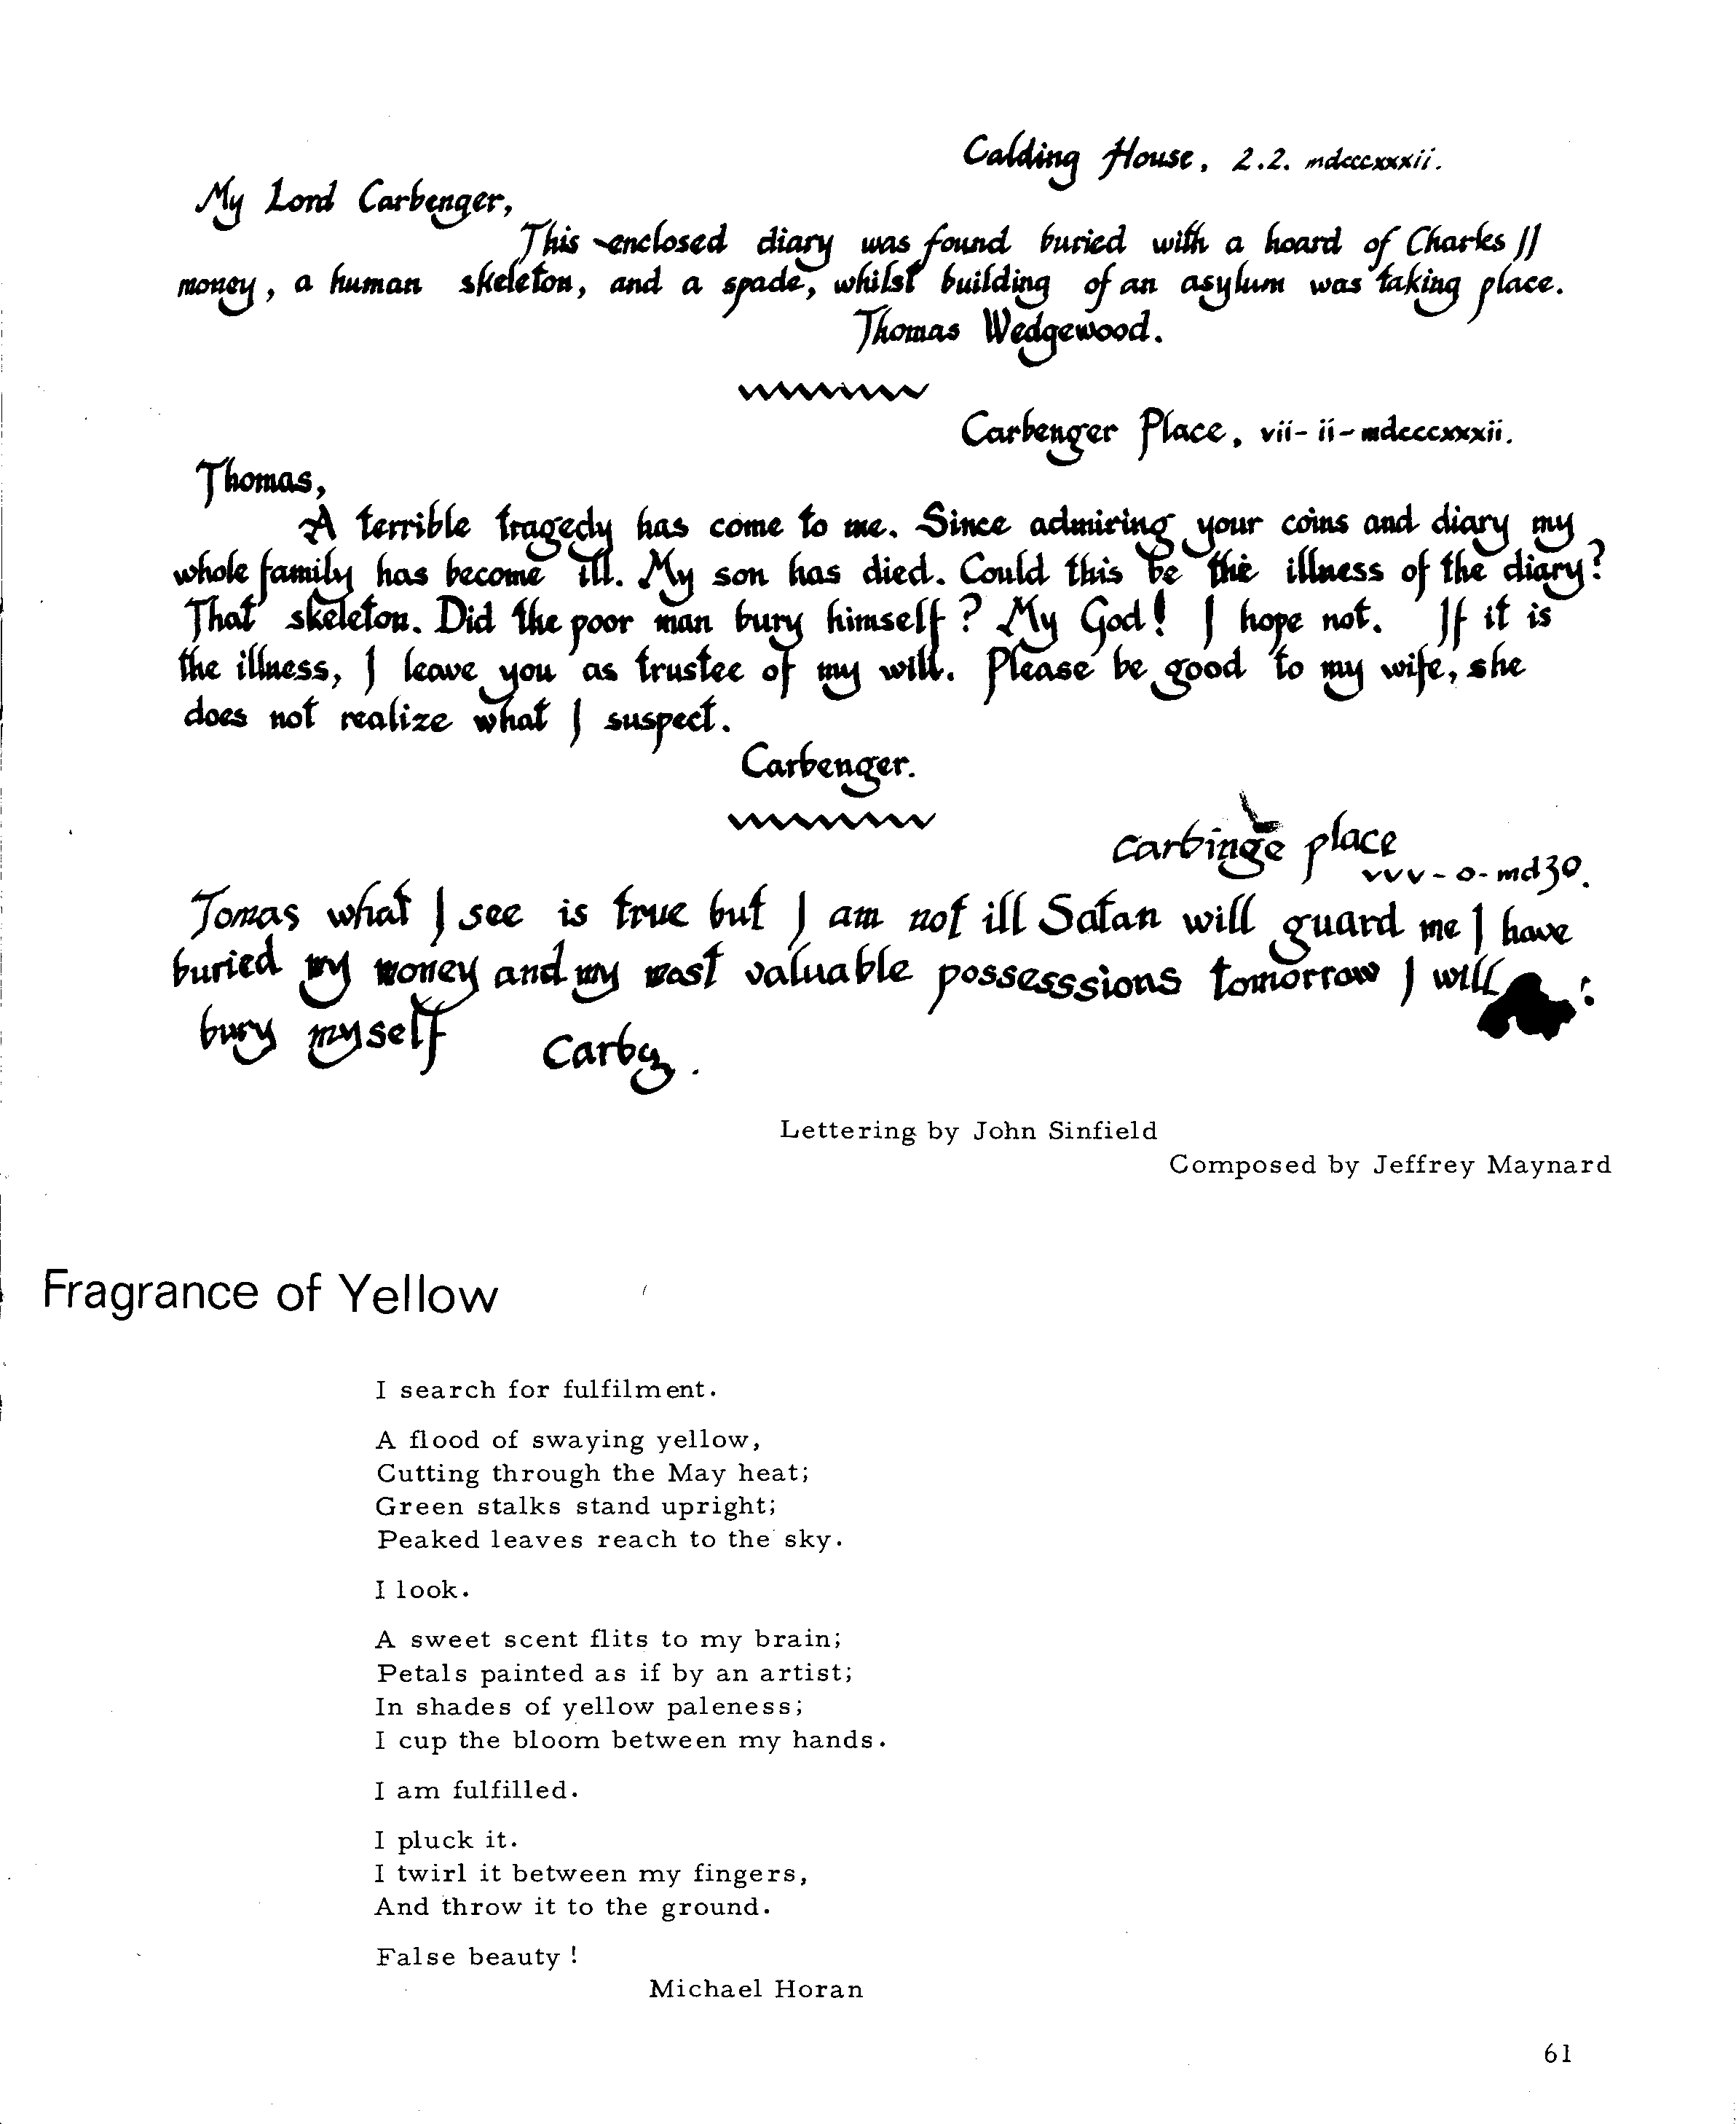 Calding House, 2.2. mdcccxxxii.
My Lord Carbenger,
This enclosed diary was found buried with a hoard of Charles II
money, a human skeleton, and a spade, whilst building of an asylum was taking place.
Thomas Wedgewood.
Carbenger Place, vii-ii-mdcccxxxii.
Thomas,
A terrible tragedy has come to me. Since admiring your coins and diary my
whole family has become ill. My son has died. Could this be the illness of the diary?
That skeleton. Did the poor man bury himself? My God! I hope not. If it is
the illness, I leave you as trustee of my will. Please be good to my wife, she
does not realize what I suspect.
Carbenger.
Carbinge place
vvv-o-md30.
Tomas what I see is true but I am not ill Satan will guard me I have
buried my money and my most valuable possesssions tomorrow I will
bury myself Carby.
Lettering by John Sinfield
Composed by Jeffrey Maynard
Fragrance of Yellow
I search for fulfilment.
A flood of swaying yellow,
Cutting through the May heat;
Green stalks stand upright;
Peaked leaves reach to the sky.
I look.
A sweet scent flits to my brain;
Petals painted as if by an artist;
In shades of yellow paleness;
I cup the bloom between my hands.
I am fulfilled.
I pluck it.
I twirl it between my fingers,
And throw it to the ground.
False beauty !
Michael Horan
61